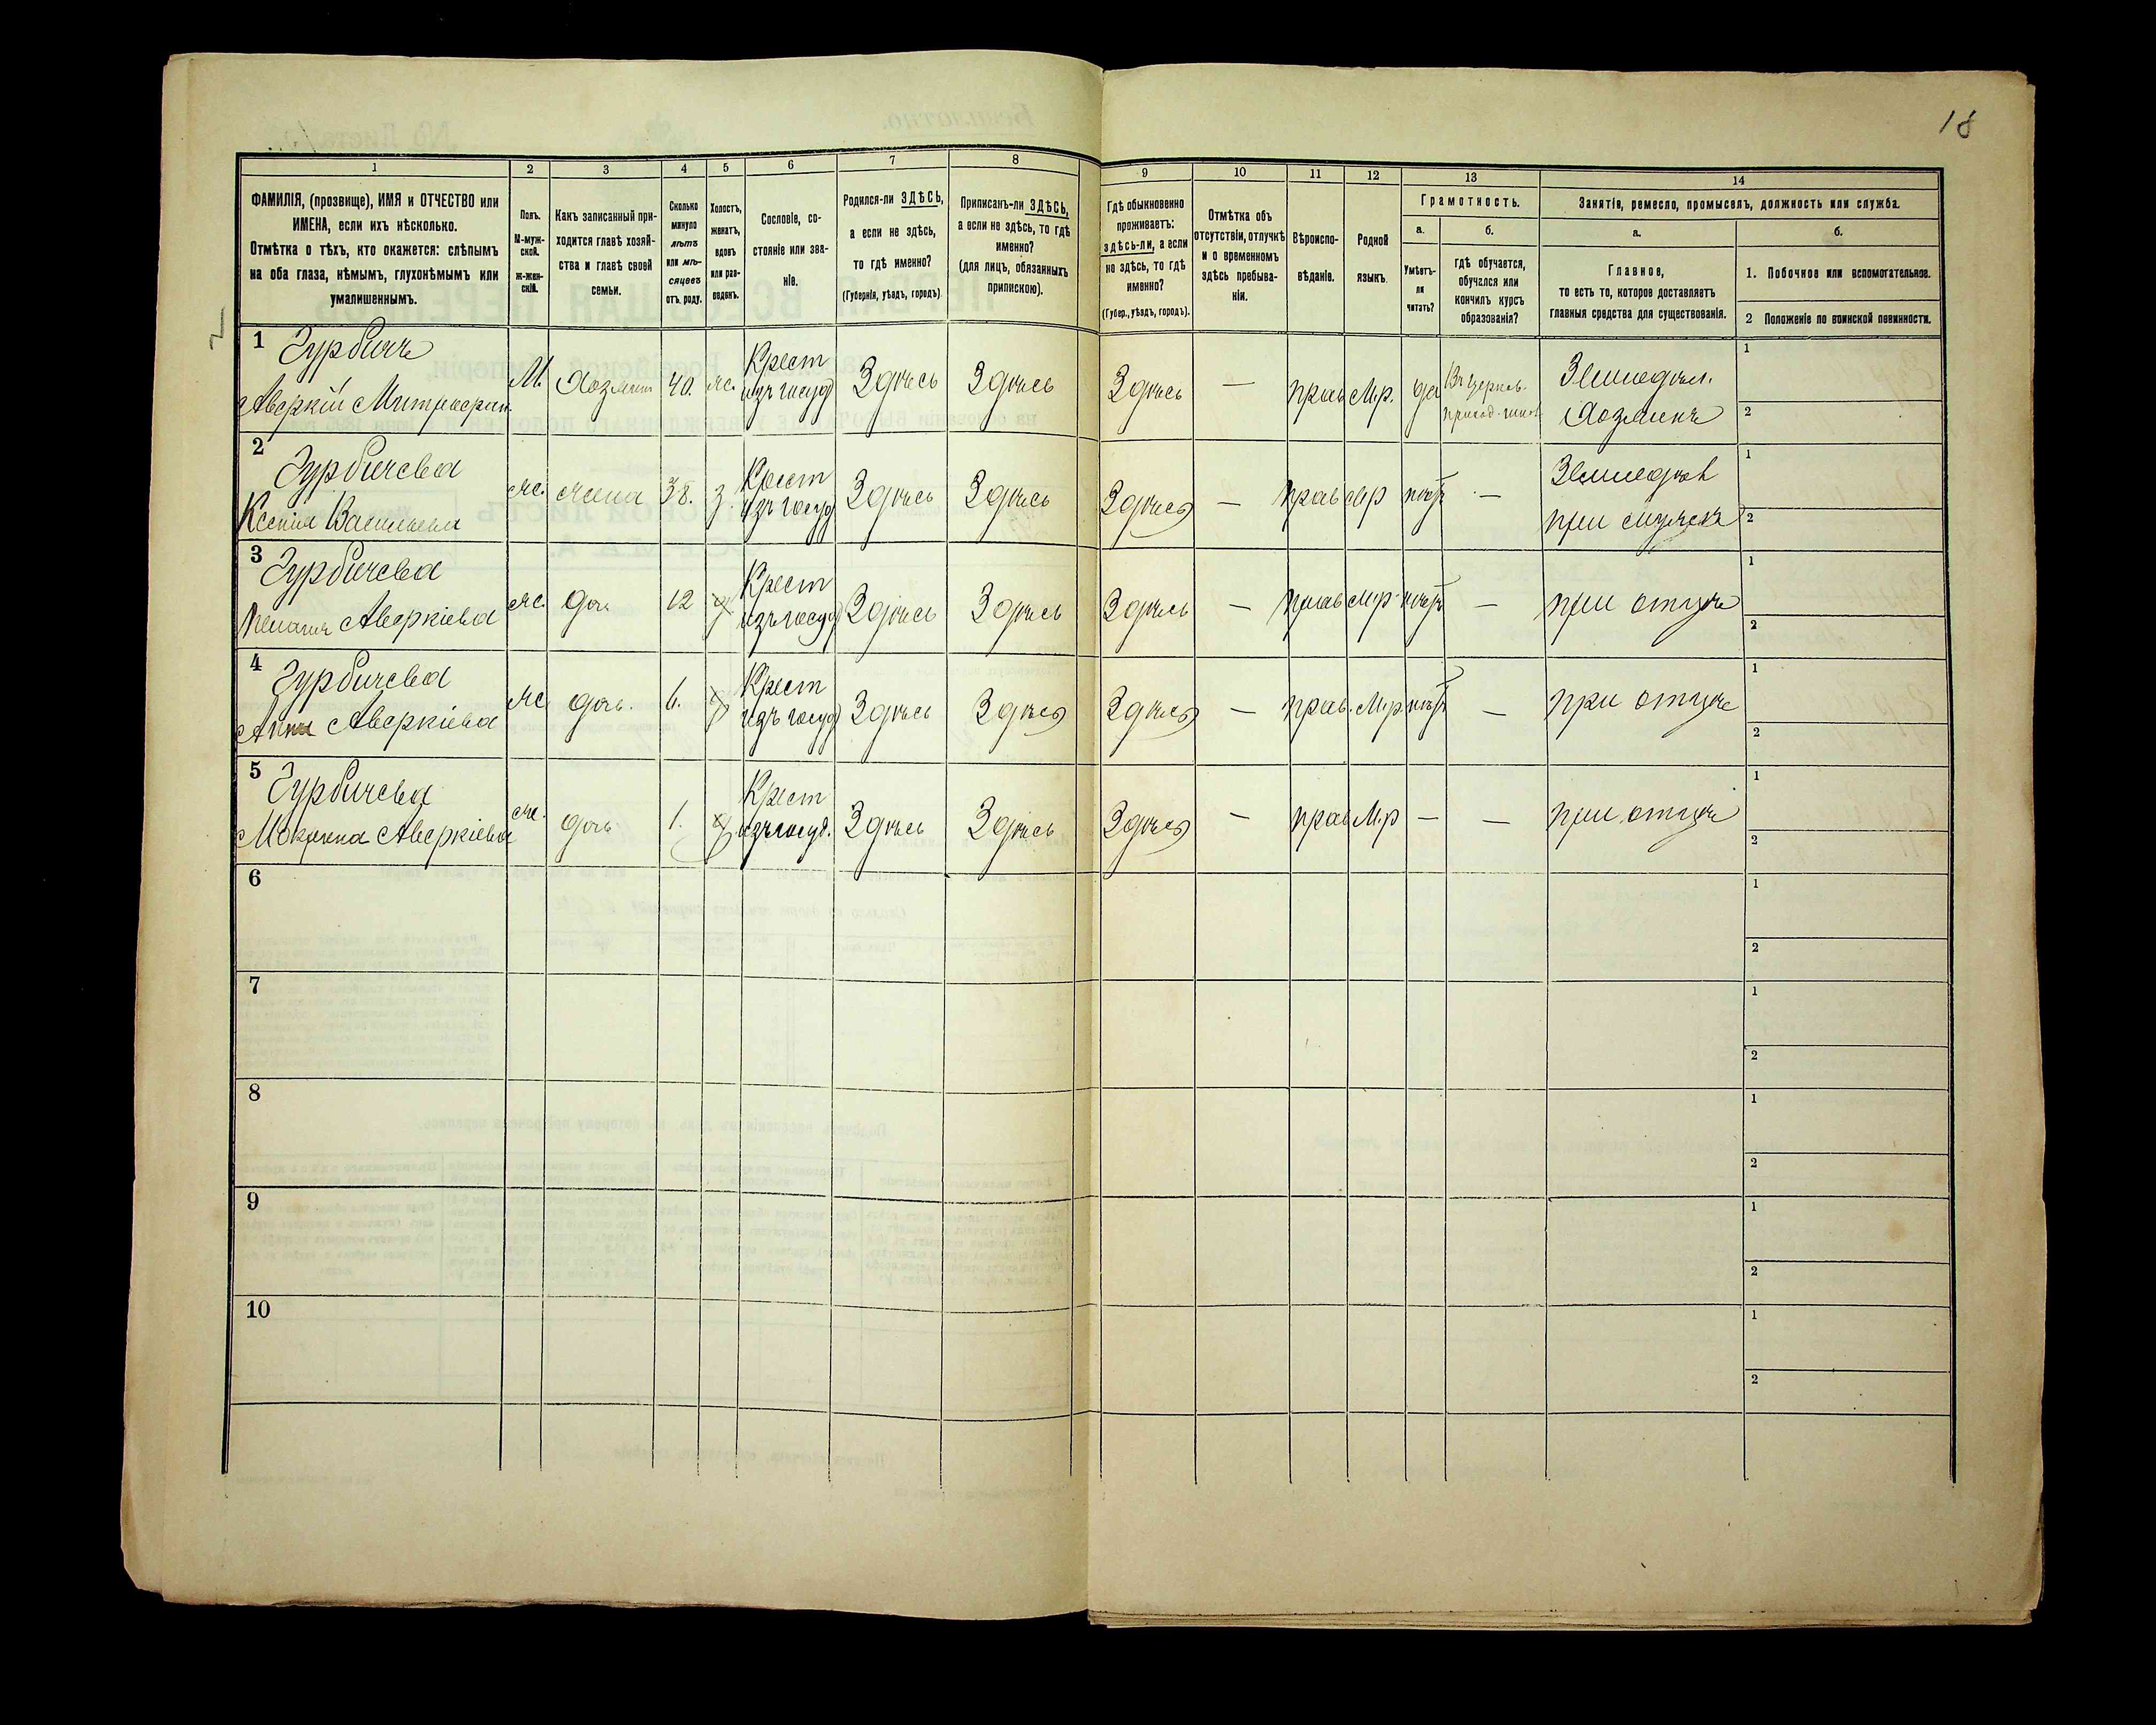 18
1 2 3 4 5 6 7 8 9 10 11 12 13 14
ФАМИЛІЯ, (прозвище), ИМЯ и ОТЧЕСТВО или
ИМЕНА, если ихъ нѣсколько.
Отмѣтка о тѣхъ, кто окажется: слѣпымъ
на оба глаза, нѣмымъ, глухонѣмымъ или
умалишеннымъ.
Полъ.
М-муж-
ской.
ж-жен-
скій.
Какъ записанный при-
ходится главѣ хозяй-
ства и главѣ своей
семьи.
Сколько
минуло
лѣтъ
или мѣ-
сяцевъ
отъ роду.
Холостъ,
женатъ,
вдовъ
или раз-
веденъ.
Сословіе, со-
стояніе или зва-
ніе.
Родился-ли ЗДѢСЬ,
а если не здѣсь,
то гдѣ именно?
(Губернія, уѣздъ, городъ)
Приписанъ-ли ЗДѢСЬ,
а если не здѣсь, то гдѣ
именно?
(для лицъ, обязанныхъ
припискою).
Гдѣ обыкновенно
проживаетъ:
здѣсь-ли, а если
не здѣсь, то гдѣ
именно?
(Губер., уѣздъ, городъ).
Отмѣтка объ
отсутствіи, отлучкѣ
и о временномъ
здѣсь пребыва-
ніи.
Вѣроиспо-
вѣданіе.
Родной
языкъ.
Грамотность.
а.
Умѣетъ-
ли
читать?
б.
гдѣ обучается,
обучался или
кончилъ курсъ
образованія?
Занятіе, ремесло, промыселъ, должность или служба.
а.
Главное,
то есть то, которое доставляетъ
главныя средства для существованія.
б.
1. Побочное или вспомогательное.
2 Положеніе по воинской повинности.
1 Гурбичъ
Аверкій Митрофан.
М. Хозяин 40. ж. Крест
изъ госуд Здѣсь Здѣсь Здѣсь — прав М.р. да Въ церков.
приход. школ. Земледѣл.
Хозяинъ
1
2
2 Гурбичева
Ксенія Васильева
ж. жена 38. з. Крест
изъ госуд Здѣсь Здѣсь Здѣсь — прав М.р нѣтъ — Земледѣл
при мужѣ
1
2
3 Гурбичева
Пелагія Аверкіева
ж. дочь 12 Крест
изъ госуд Здѣсь Здѣсь Здѣсь — прав М.р. нѣтъ — при отцѣ
1
2
4 Гурбичева
Анна Аверкіева
ж дочь. 6. Крест
изъ госуд Здѣсь Здѣсь Здѣсь — прав. М.р. нѣтъ — при отцѣ
1
2
5 Гурбичева
Мокрина Аверкіева
ж. дочь 1. Крест
изъ госуд. Здѣсь Здѣсь Здѣсь — прав М.р — — при отцѣ
1
2
6
1
2
7
1
2
8
1
2
9
1
2
10
1
2